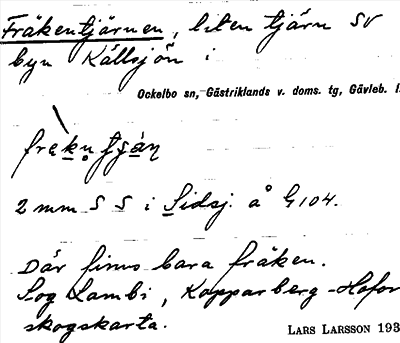 Fräkentjärnen, liten tjärn SV
byn Källsjön i
Ockelbo sn, Gästriklands v. doms. tg, Gävleb. l.
2 mm S S i Sidsj. å G104.
Där finns bara fräken.
Sog Lambi, Kopparberg-Hofor
skogskarta.
LARS LARSSON 193